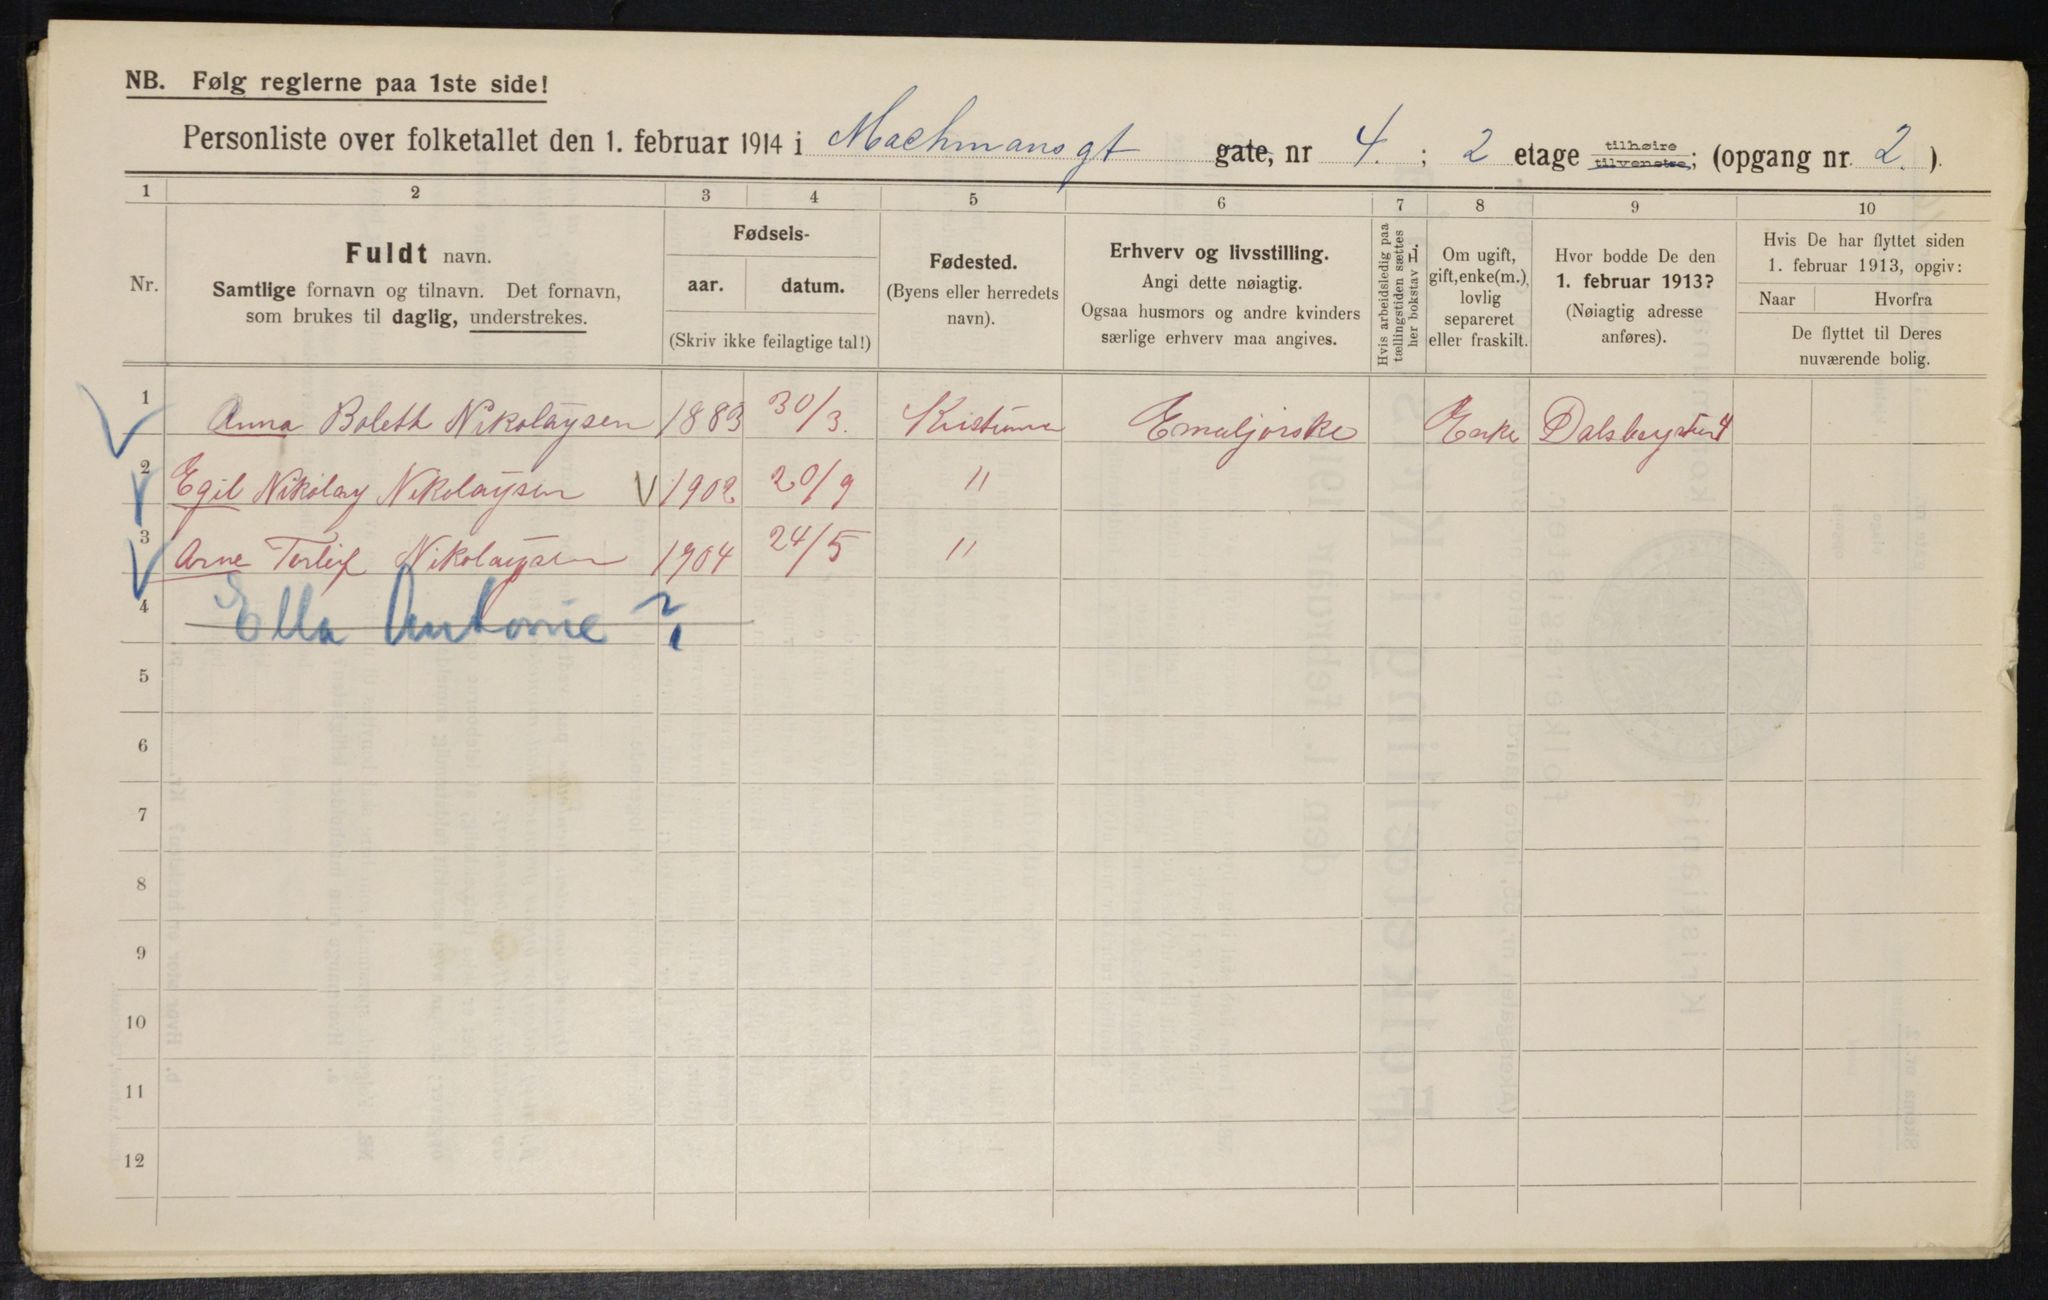 NB. Følg reglerne paa 1ste side!
Personliste over folketallet den 1. februar 1914 i Machmansgt gate, nr 4. ; 2 etage tilhøire tilvenstre; (opgang nr. 2. ).
1 2 3 4 5 6 7 8 9 10
Nr.
Fuldt navn.
Samtlige fornavn og tilnavn. Det fornavn,
som brukes til daglig, understrekes.
Fødsels-
aar. datum.
(Skriv ikke feilagtige tal!)
Fødested.
(Byens eller herredets
navn).
Erhverv og livsstilling.
Angi dette nøiagtig.
Ogsaa husmors og andre kvinders
særlige erhverv maa angives.
Hvis arbeidsledig paa
tællingstiden sættes
her bokstav L.
Om ugift,
gift, enke(m.),
lovlig
separeret
eller fraskilt.
Hvor bodde De den
1. februar 1913?
(Nøiagtig adresse
anføres).
Hvis De har flyttet siden
1. februar 1913, opgiv:
Naar Hvorfra
De flyttet til Deres
nuværende bolig.
1 Anna Boleth Nikolaysen 1883 30/3. Kristiania Emaljørske Enke Dalsbergstien 4
2 Egil Nikolay Nikolaysen V 1902 20/9 "
3 Arne Torleif Nikolaysen 1904 24/5 "
4 Ella Antonie ?
5
6
7
8
9
10
11
12